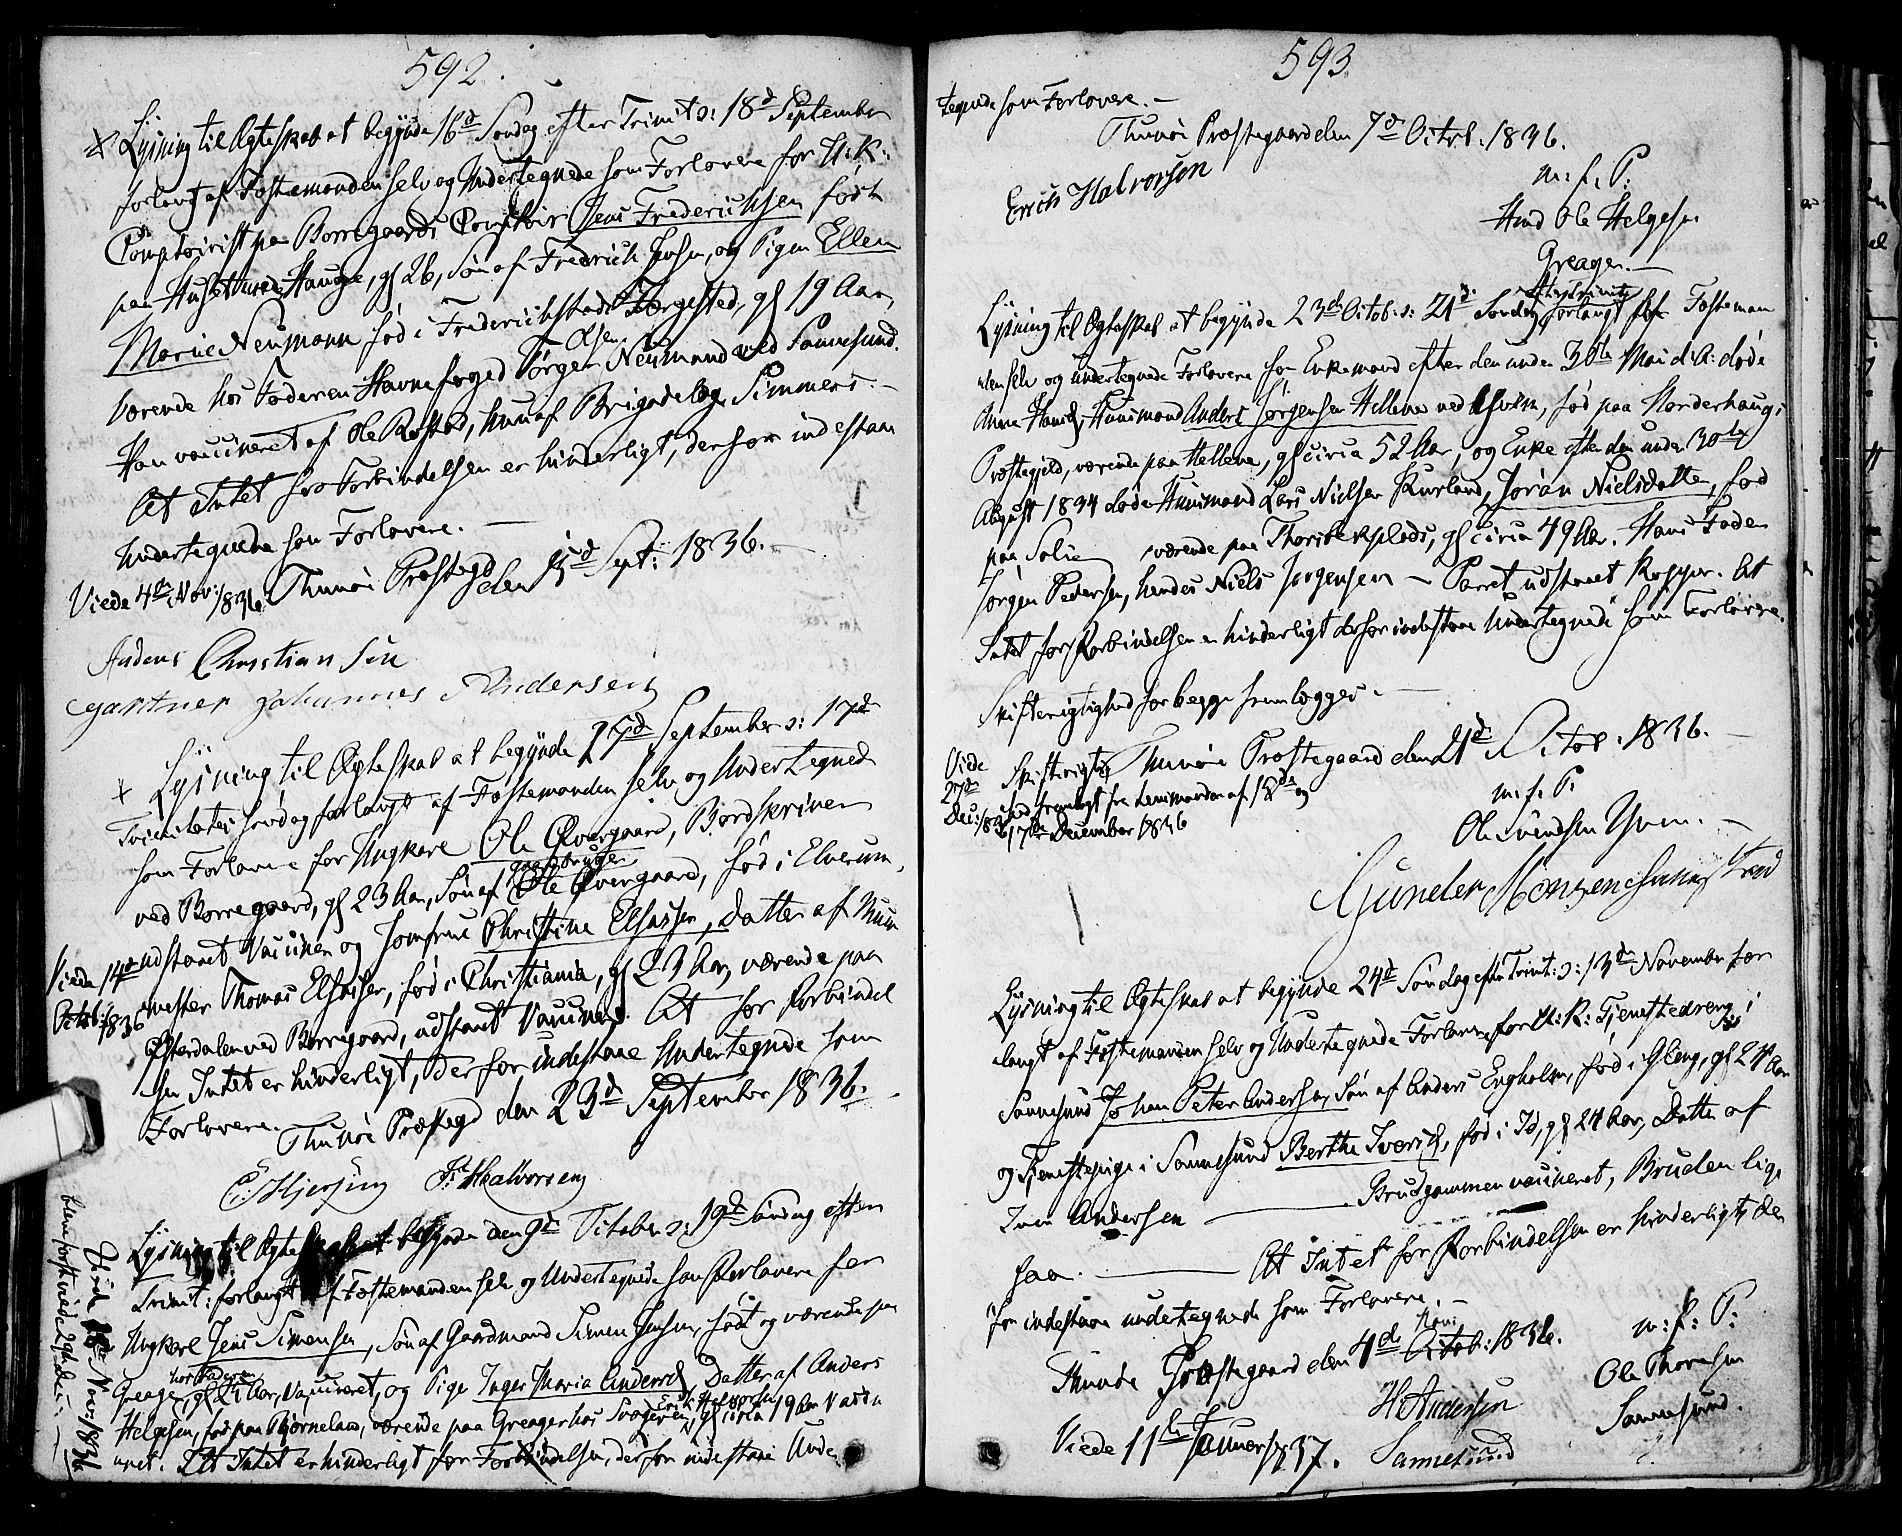 592.
Lysning til Ægteskab at begynde 16d Søndag efter Trinit. ɔ: 18d September
forlangt af Fæstemanden selv og Undertegnede som Forlovere for U: K:
Comptoirist paa Borregaards Comptoir Jens Frederichsen født
paa Huset Hauge, gl 26, Søn af Fredrich Jensen, og Pigen Ellen
Marie Neumann fød i Frederichstad gl 19 Aar,
værende hos Faderen Havnefoged Jørgen Olsen Neumand ved Sannesund.
Han vaccineret af Ole Rostad, hun af Brigadelæge Simmers.
At Intet for Forbindelsen er hinderligt, derfor indestaae
Undertegnede som Forlovere.
Viede 4de Nov: 1836. Thunøe Præstegd den 15d Sept: 1836.
Anders Christiansen
gartner Johannes Andersen
Lysning til Ægteskab at begynde 25d September ɔ: 17de
Trinitatis søndag forlangt af Fæstemanden selv og Undertegnede
som Forlovere for Ungkarl Ole Øvergaard, Bordskriver
ved Borregaard, gl 23 Aar, Søn af Gaardbruger Ole Øvergaard, fød i Elverum,
udstaaet Vaccinen og Jomfrue Christine Elsasser, Datter af Muur
Viede 14de mester Thomas Elsasser, fød i Christiania, gl 23 Aar, værende paa
Octob: 1836 Østerdalen ved Borregaard, udstaaet Vaccinen. At for Forbindel
sen Intet er hinderligt, derfor indestaae Undertegnede som
Forlovere.
Thunøe Præstegd den 23d September 1836.
C. Hjersing P. Halvorsen
Lysning til Ægteskab at begynde den 9d October ɔ: 19d Søndag efter
Trinit: forlangt af Fæstemanden selv og Undertegnede som Forlovere for
Ungkarl Jens Simensen, Søn af Gaardmand Simen Jensen, født og værende paa
Greager, hos Faderen, gl Aar, Vaccineret, og Pige Inger Maria Andersd, Datter af Anders
Helgesen, fød paa Bjørneland, værende paa Greager hos Svogeren Erik Halvorsen, gl circa 19 Aar Vacci
neret. At Intet er hinderligt for Forbindelsen, derfor indestaae Unde
Viede Nov: 1836
bleve først viede 29de Dec:
593
tegnede som Forlovere.
Thunøe Præstegaard den 7d Octrb: 1836.
Erich Halvorsen
m. f. P.
Hmd Ole Helgesen
Greager.
Lysning til Ægteskab at begynde 23de Octob. ɔ: 21d Søndag efter Trinit: forlangt af Fæsteman
den selv og undertegnede Forlovere for Enkemand efter den under 30te Mai d. A: døde
Anne Hansd, Huusmand Anders Jørgensen Hellene ved Holm, fød paa Norderhaugs
Præstegjeld, værende paa Hellene, gl circa 52 Aar, og Enke efter den under 30te
August 1834 døde Huusmand Lars Nielsen Kurland, Jøran Nielsdatter, fød
paa Solie værende paa Thorsbekplads, gl circa 49 Aar. Hans Fader
Jørgen Pedersen, hendes Niels Jørgensen — Parret udstaaet Kopper. At
Intet for Forbindelsen er hinderligt derfor indestaae Undertegnede som Forlovere.
Skifterigtighed for begge fremlægges.
Thunøe Præstegaard den 21d Octob: 1836.
Viede
27de
Dec: 1836
Skifterigtig
hed fremlagt fra Lensmanden af 15de og
17de December 1836
m. f. P.
Ole Svendsen Yven.
Gunder Monsen
Lysning til Ægteskab at begynde 24de Søndag efter Trinit: ɔ: 13de November for
langt af Fæstemanden selv og Undertegnede Forlovere for U: K: Tjenestedreng i
Sannesund Johan Peter Andersen, Søn af Anders Engholm, fød i Gleng, gl 24 Aar
og Tjenestepige i Sannesund Berthe Iversd, fød i Id, gl 24 Aar, Datter af
Iver Andersen — Brudgommen vaccineret, Bruden lige
saa. — At Intet for Forbindelsen er hinderligt der
for indestaae undertegnede som Forlovere.
Thunøe Præstegaard den 4de Nov: 1836.
m: f: P:
H Andersen
Sannesund
Ole Thoresen
Sannesund.
Viede 11te Januar 1837.